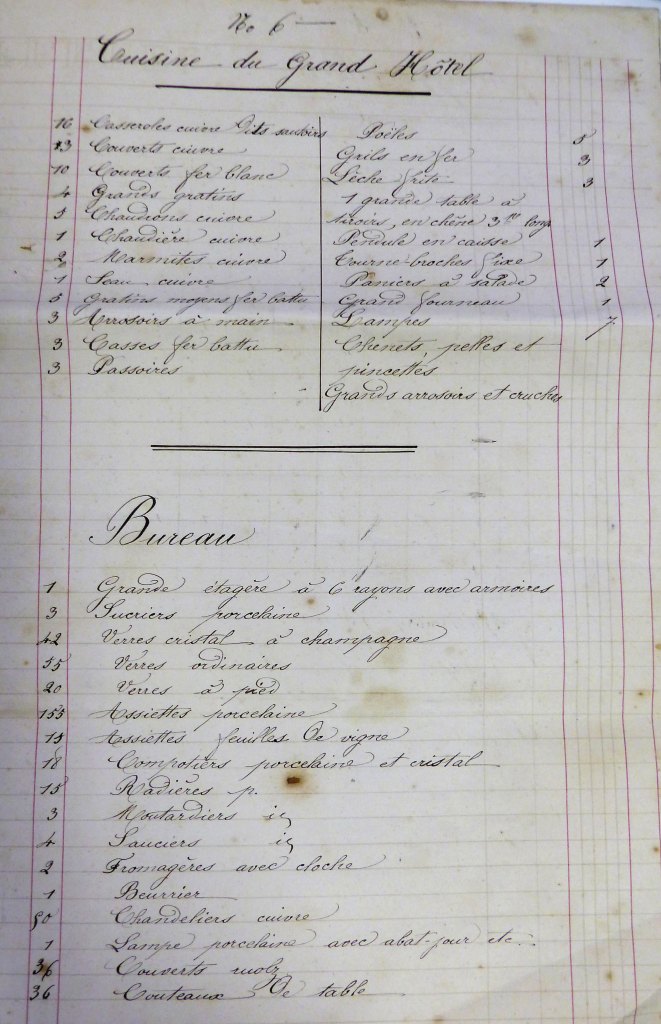 No 6
Cuisine du Grand Hôtel
16 Casseroles cuivre dits sautoirs
13 Couverts cuivre
10 Couverts fer blanc
4 Grands gratins
5 Chaudrons cuivre
1 Chaudière cuivre
2 Marmites cuivre
1 Seau cuivre
5 Gratins moyens fer battu
3 Arrosoirs à main
3 Casses fer battu
3 Passoires
Poëles 5
Grils en fer 3
Lèche frite 3
1 grande table à
tiroirs, en chêne 3 long
Pendule en caisse 1
Tourne-broches fixe 1
Paniers à salade 2
Grand fourneau 1
Lampes 7
Chenets, pelles et
pincettes
Grands arrosoirs et cruches
Bureau
1 Grande étagère à 6 rayons avec armoires
3 Sucriers porcelaine
42 Verres cristal à champagne
55 Verres ordinaires
20 Verres à pied
155 Assiettes porcelaine
15 Assiettes feuilles de vigne
18 Compotiers porcelaine et cristal
15 Radières p.
3 Moutardiers
4 Sauciers
2 Fromagères avec cloche
1 Beurrier
50 Chandeliers cuivre
1 Lampe porcelaine avec abat-jour etc.
36 Couverts ruolz
36 Couteaux de table